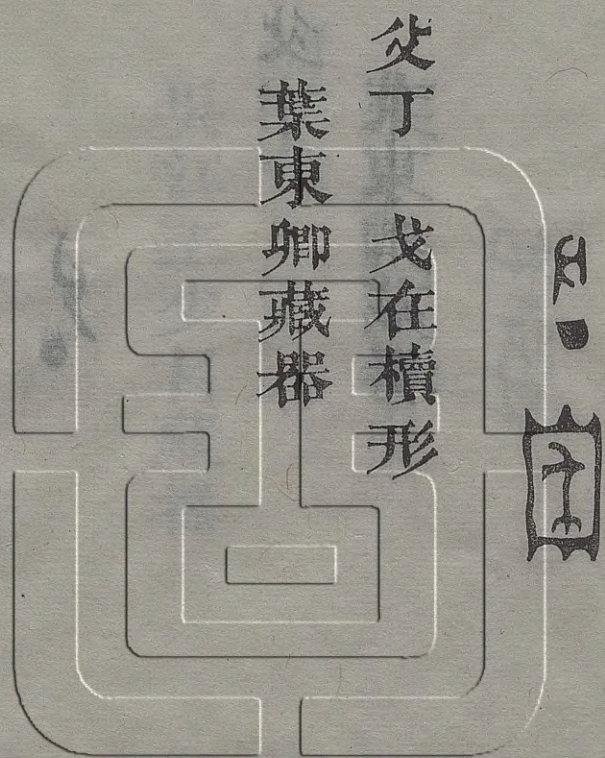 父丁　戈在櫝形
葉東卿藏器